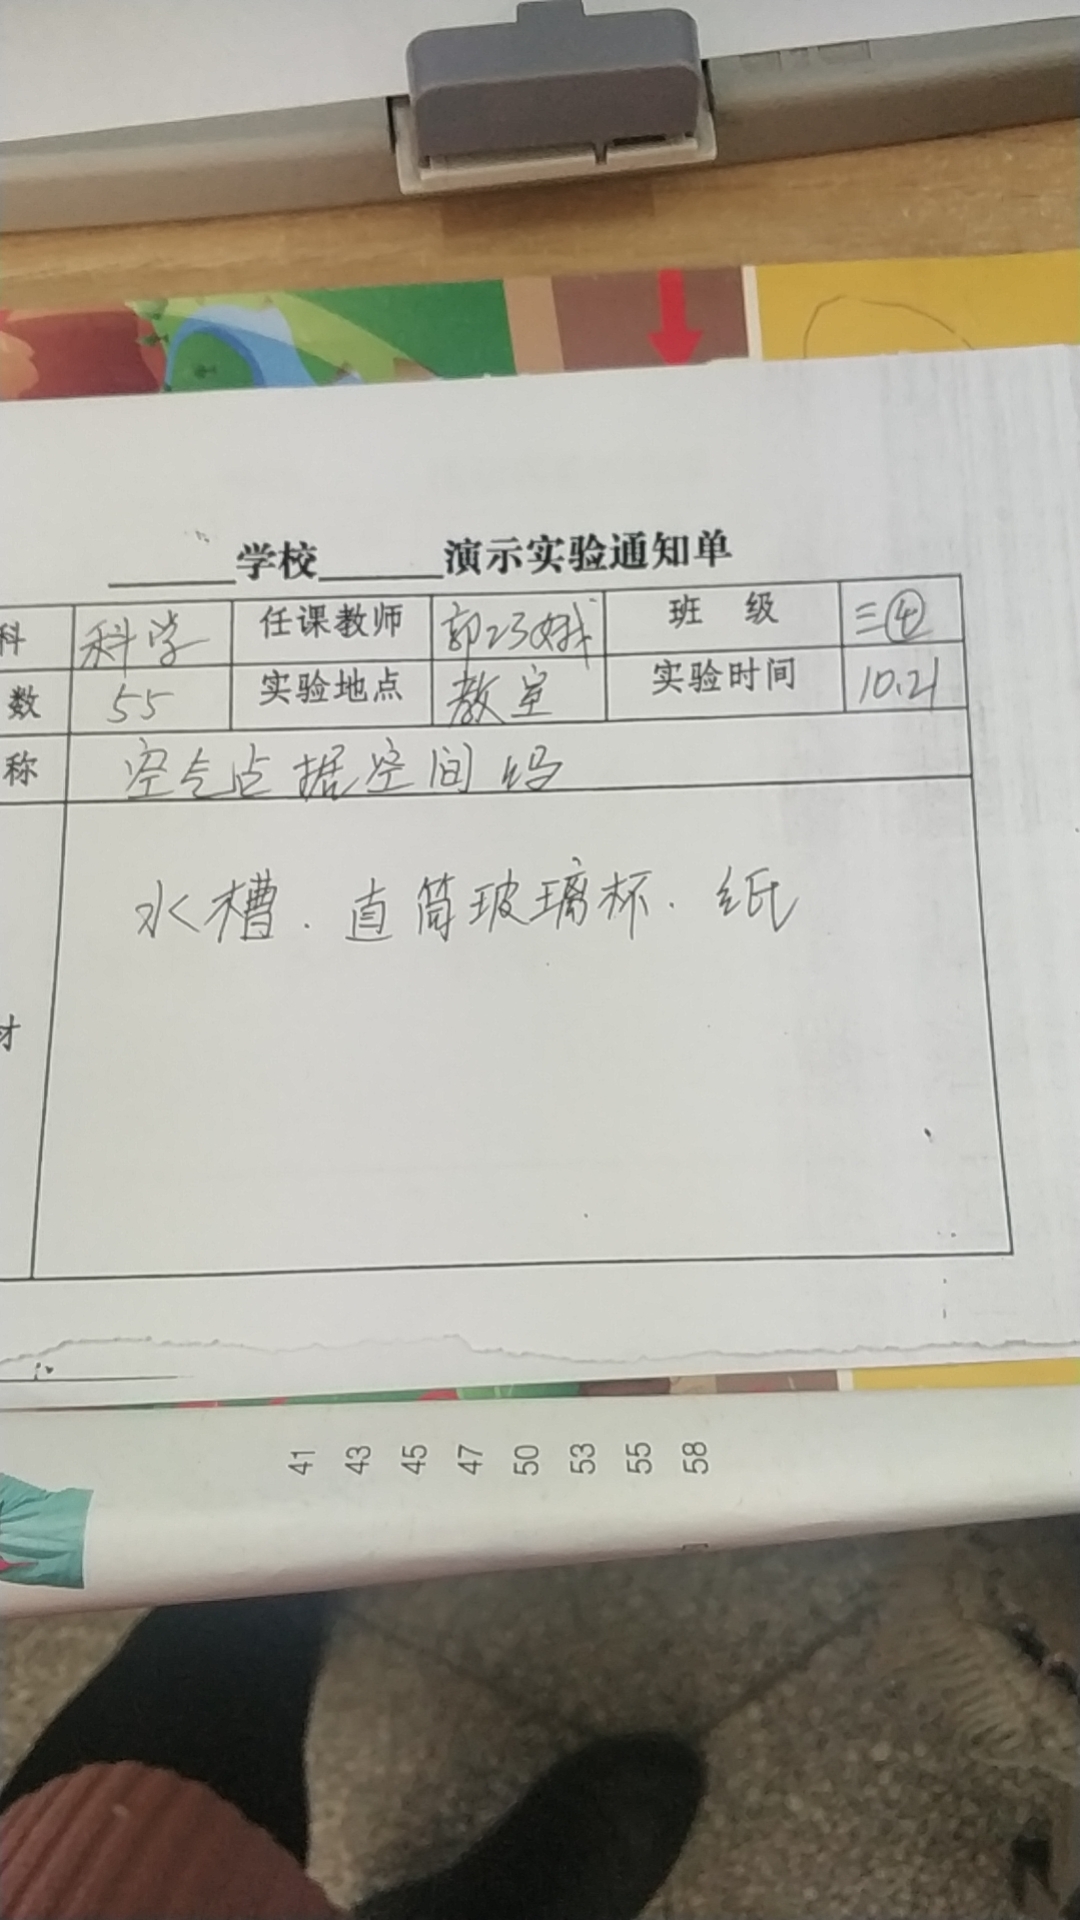 学校 演示实验通知单
科 科学 任课教师 郭巧娥 班 级 三④
数 55 实验地点 教室 实验时间 10.21
称 空气占据空间吗
水槽.直筒玻璃杯.纸
材
41 43 45 47 50 53 55 58